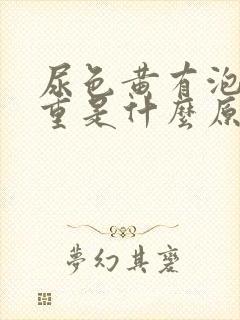 尿色黄有泡
重是什麼原
夢幻其磨